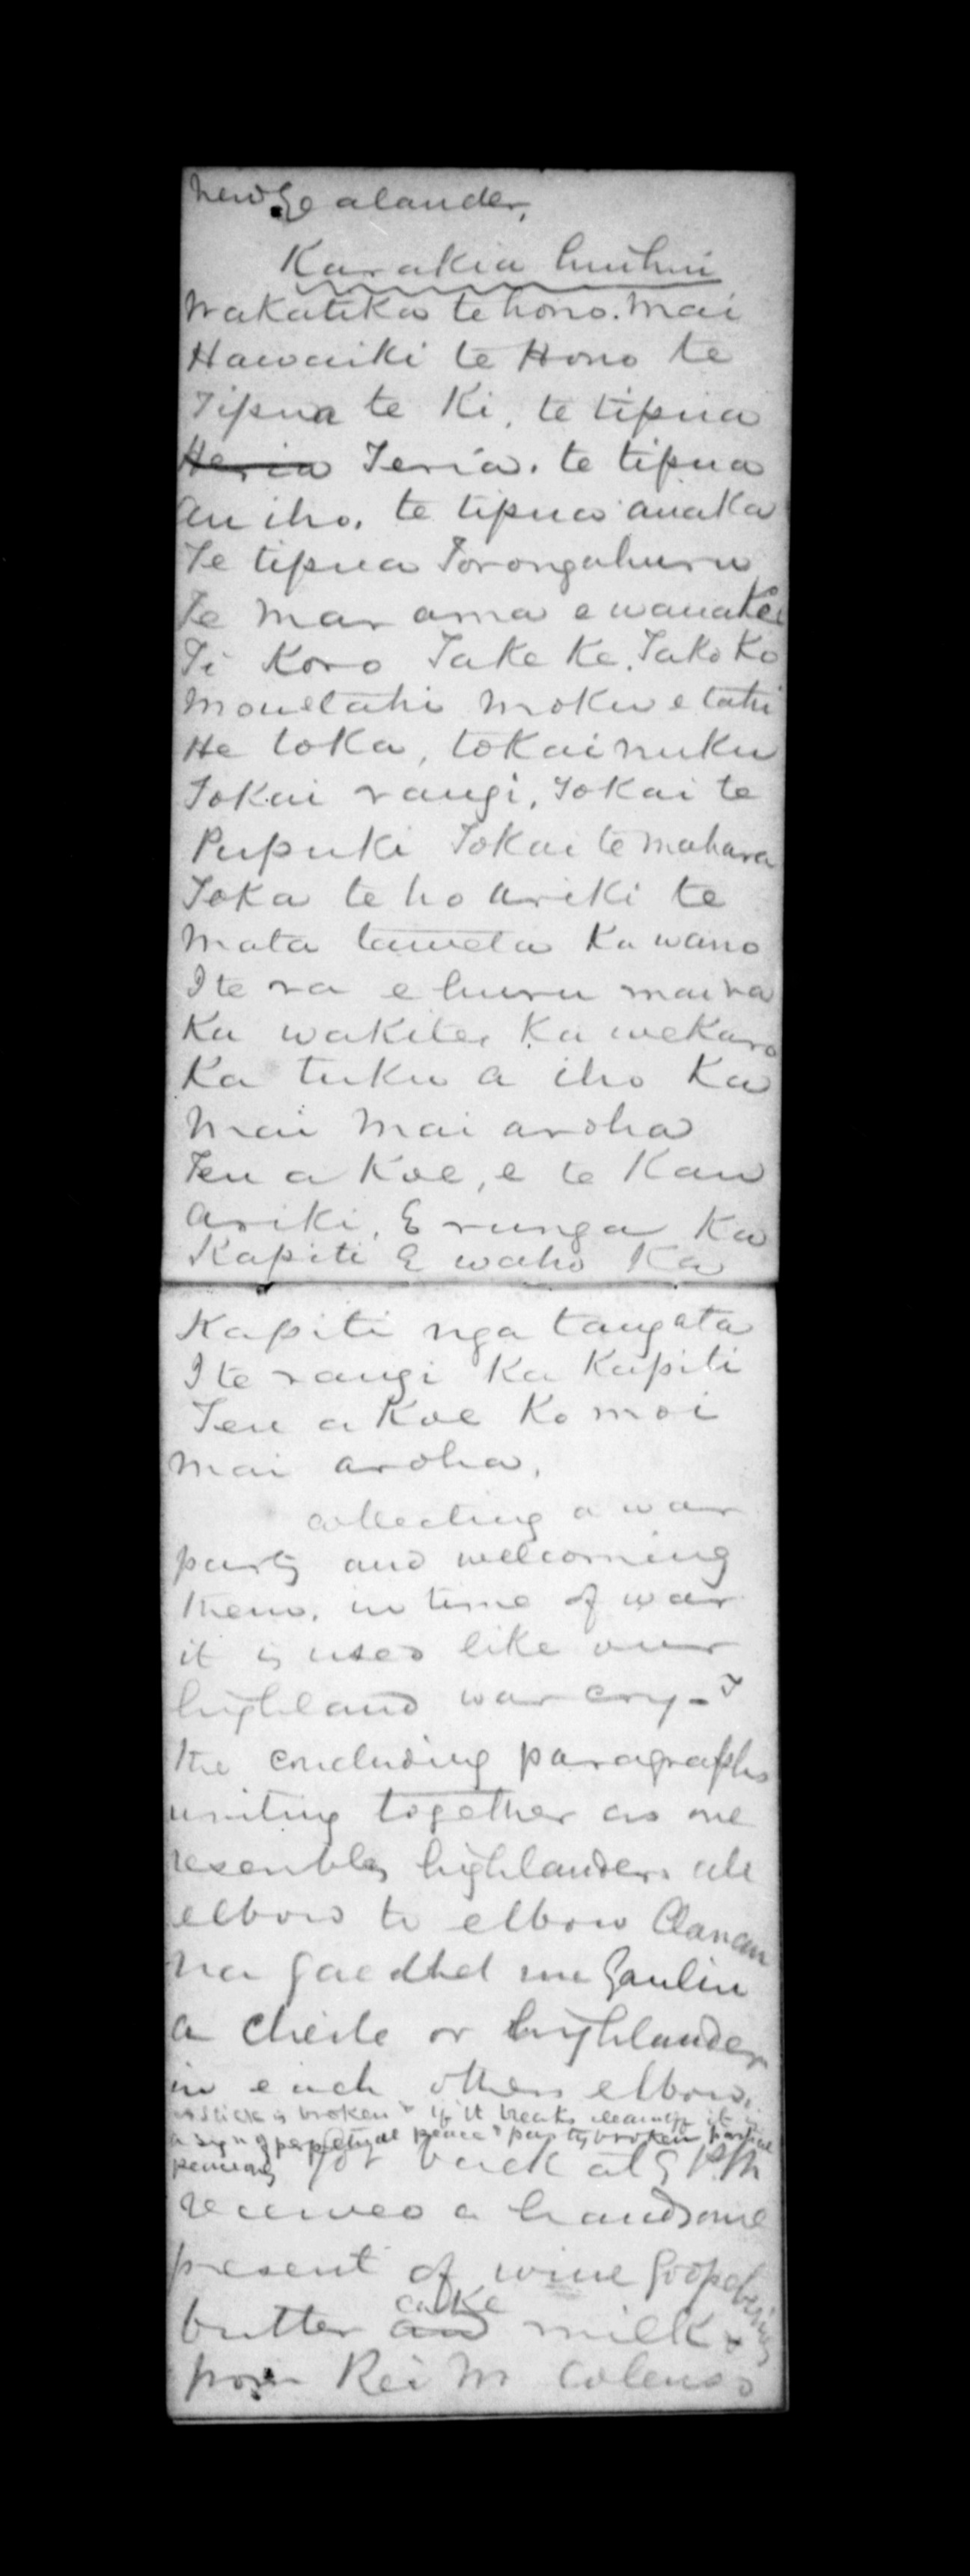 New Zealander,
Karakia huihui
Wakatika te hono. mai
Hawaiki te Hono te
Tipua te Ki, te tipua
Heria Teria. te tipua
An iho. te tipua anaka
Te tipua Torongahuru
Te mar ama e wanake
Ti Koro Take Ke. Tako Ko
Mouetahi moku e tahi
He toka, tokainuku
Tokai rangi, Tokai te
Pupuki Tokai te mahara
Toka te ho ariki te
mata taueta Ka wano
I te ra e huru maira
Ka wakitea Ka wekaro
Ka tuku a iho Ka
Mai Mai aroha
Ten a Koe, e te Kau
Ariki, E runga Ka
Kapiti E waho Ka
Kapiti nga tangata
I te rangi Ka Kapiti
Ten a Koe Ko moi
mai aroha,
collecting a war
party and welcoming
them, in time of war
it is used like our
highland war cry - &
the concluding paragraphs
uniting together as one
resembles highlanders all
elbow to elbow Clanan
na gaedhel me Gaulin
a cheile or highlander
in each others elbow,
a stick is broken & if it breaks cleanly it is
a sign of perpetual peace & partly broken partial
peace only got back at 5 P.M
received a handsome
present of wine Goosberries
butter and cake milk &
from Rev M Colenso